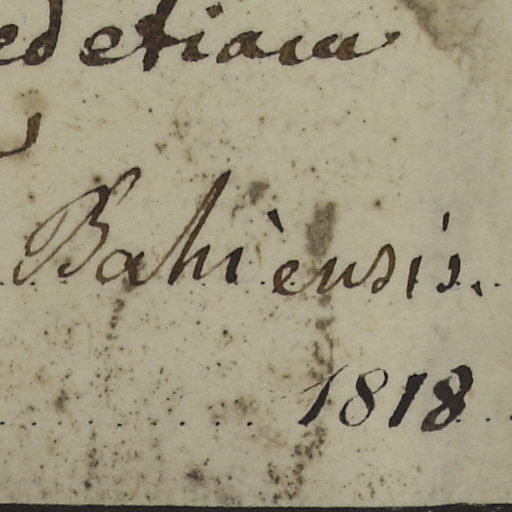 ed etiam
Bahiensis.
1818